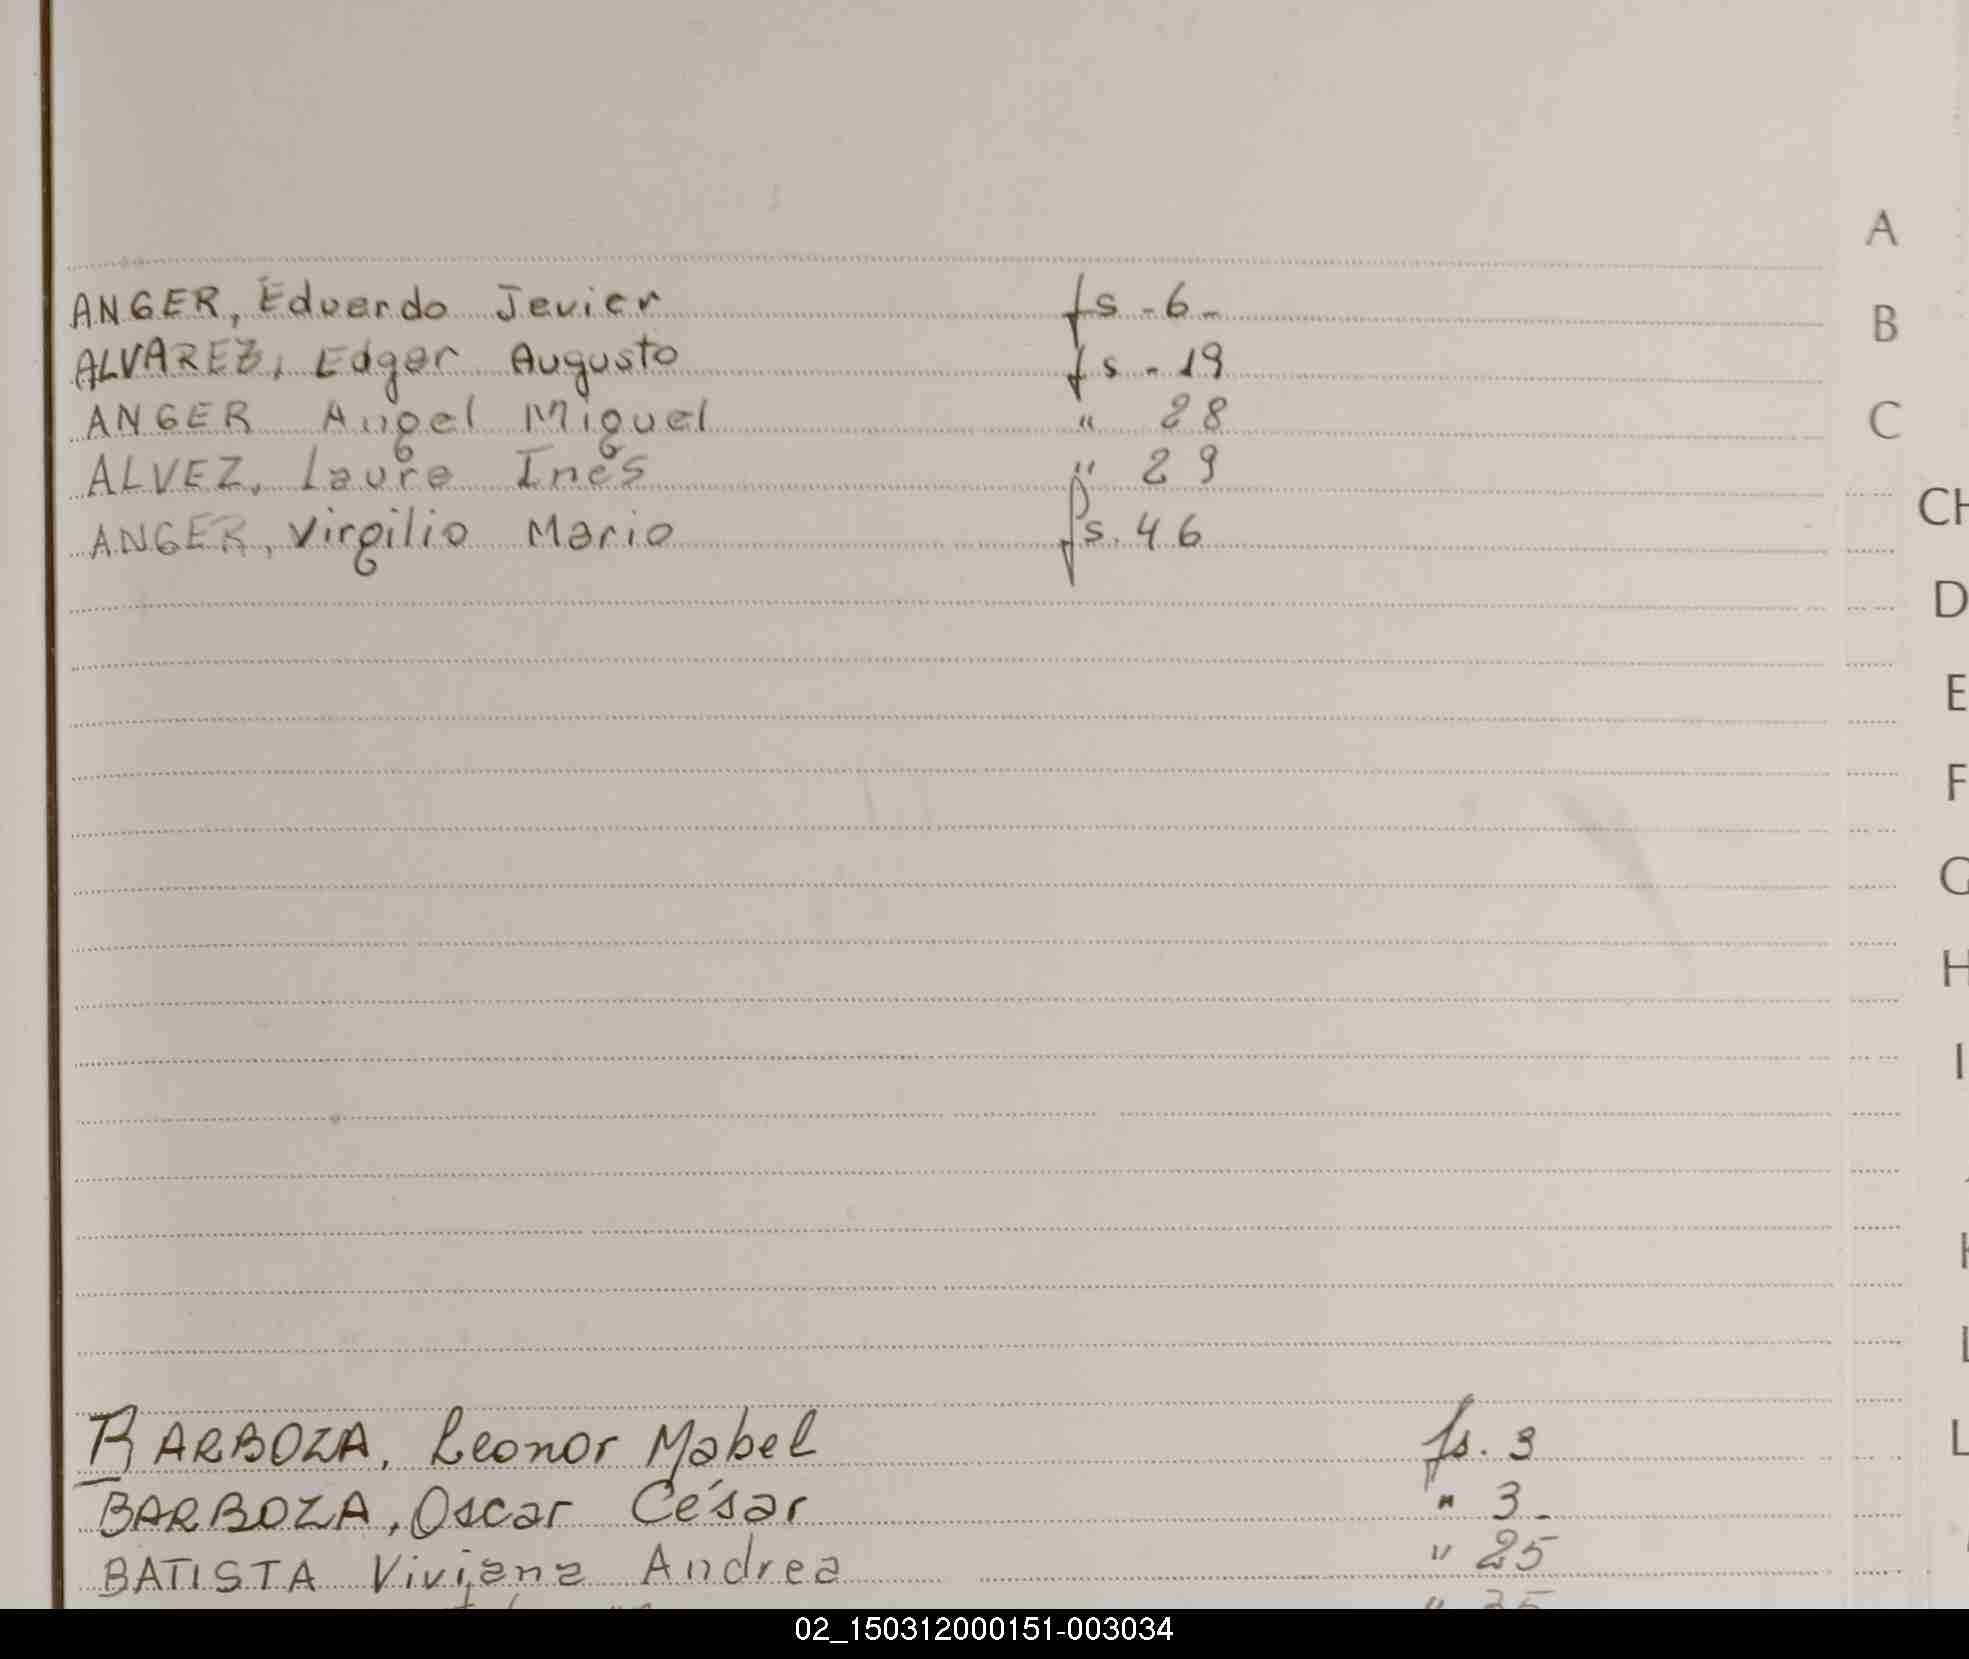 A
ANGER, Eduardo Javier fs - 6 -
B
ALVAREZ, Edgar Augusto fs - 19
ANGER Angel Miguel " 28
C
ALVEZ, Laura Inés " 29
CH
ANGER, Virgilio Mario fs. 46
D
E
F
G
H
I
L
BARBOZA, Leonor Mabel fs. 3
L
BARBOZA, Oscar César " 3 -
BATISTA Viviana Andrea " 25
" 35
02_150312000151-003034